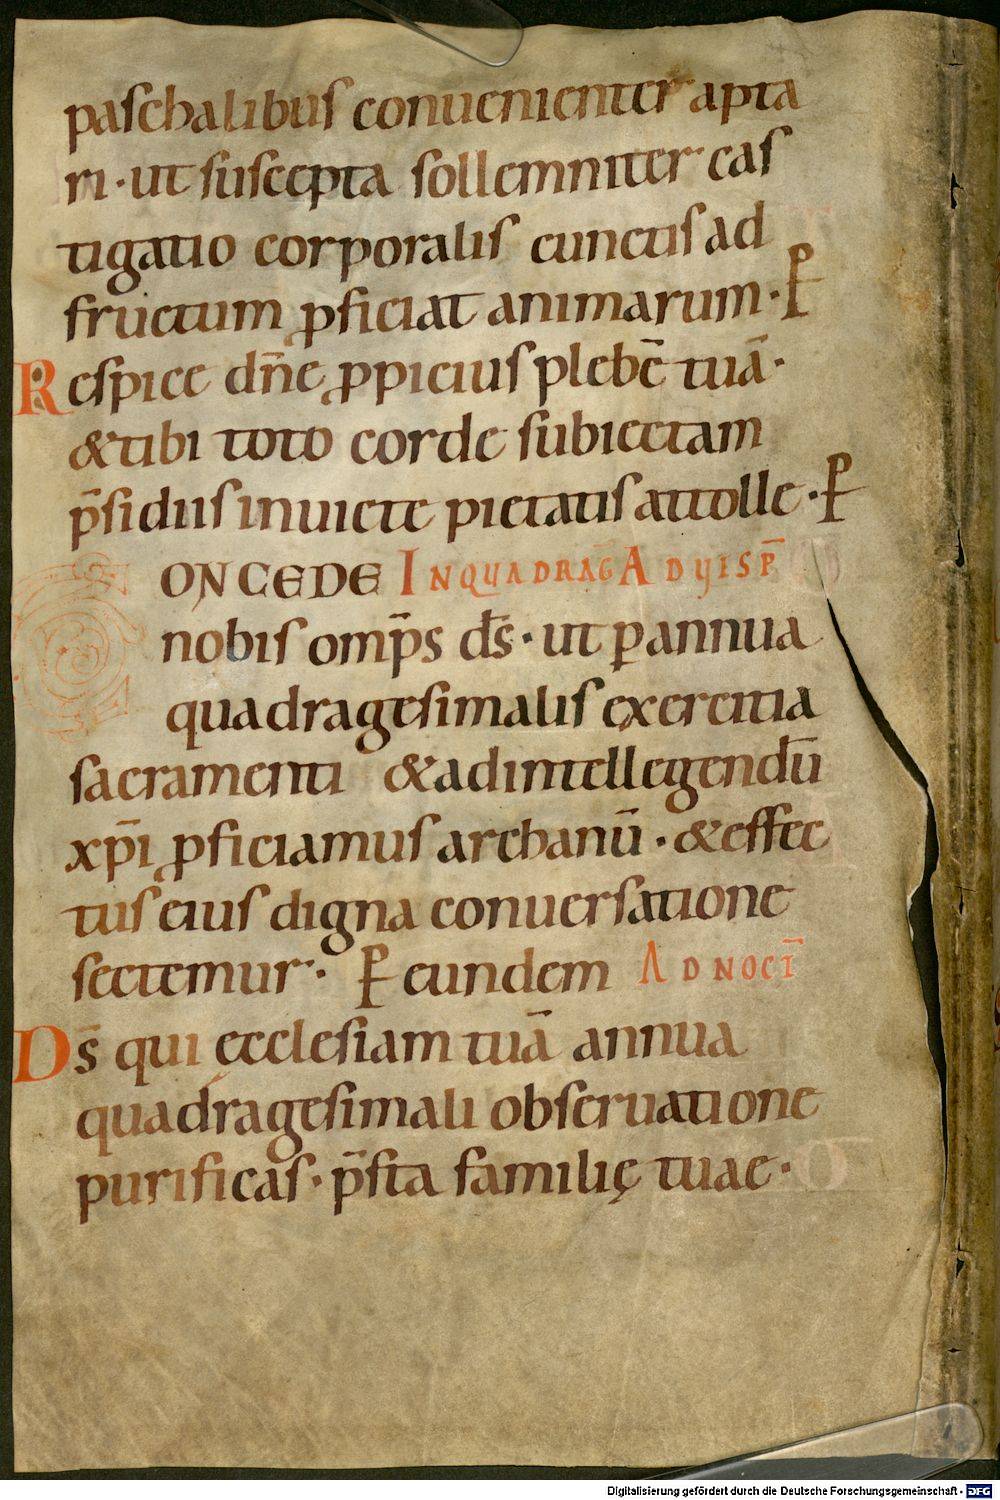 paschalibus conuenienter apta
ri · ut suscepta sollemniter cas
tigatio corporalis cunctis ad
fructum ꝓficiat animarum · ꝑ
Respice dn̄e ꝓpicius plebē tuā ·
&tibi toto corde subiectam
p̄sidiis inuicte pietatis attolle · ꝑ
CONCEDE IN QUADRAḠ AD VĪSP̄
nobis omp̄s ds̄ · ut ꝑannua
quadragesimalis exercitia
sacramenti &adintellegendū
xp̄i ꝓficiamus archanū · &effec
tus eius digna conuersatione
sectemur · ꝑ eundem AD NOCT̄
Ds̄ qui ecclesiam tuā annua
quadragesimali obseruatione
purificas · p̄sta familię tuae ·
Digitalisierung gefördert durch die Deutsche Forschungsgemeinschaft - DFG